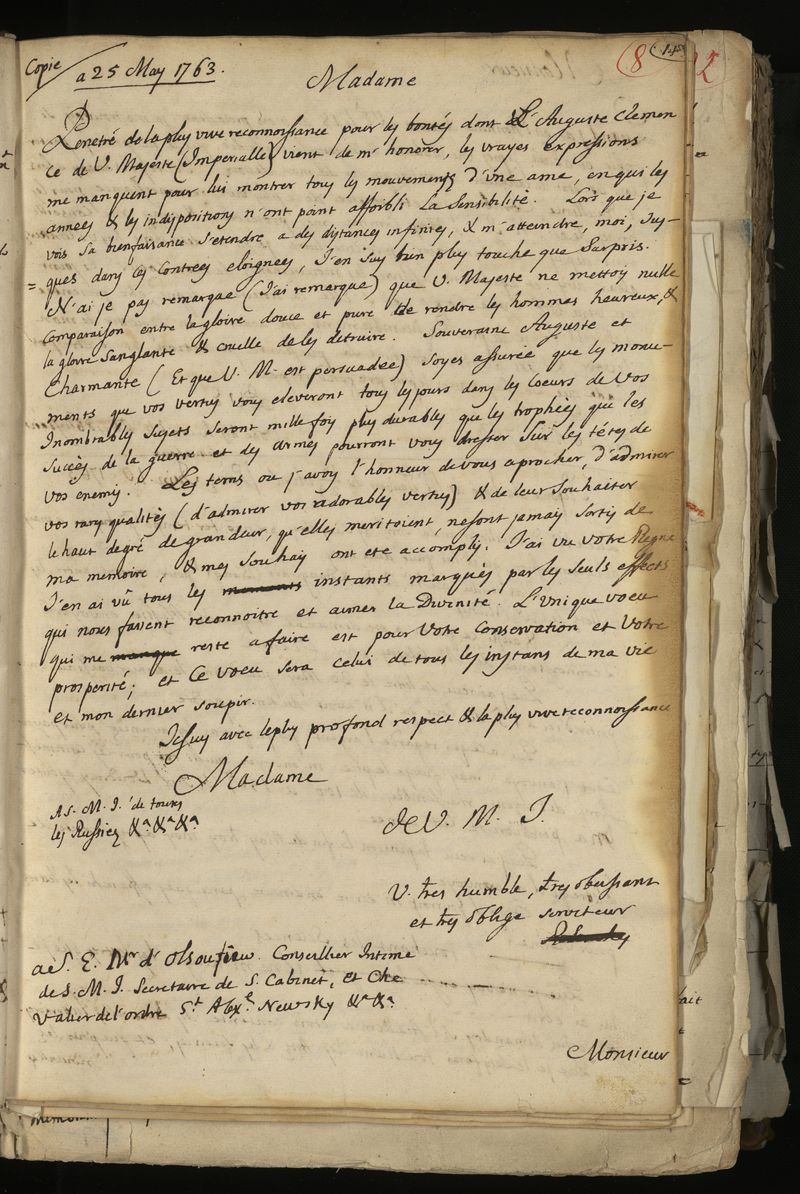 Copie
a 25 May 1763.
8
Madame
Penetré de la plus vive reconnoissance pour les bontés dont L'Auguste Clemen
ce de V. Majesté (Imperialle) vient de m'honorer, les vrayes expressions
me manquent pour lui montrer tous les mouvements d'une ame, en qui les
annees & les indispositions n'ont point affoibli La Sensibilité. Lors que je
vois sa bienfaisance s'etendre a des distances infinies, & m'atteindre, moi, Jus-
= ques dans ces Contrees eloignees, J'en suis bien plus touche que Surpris.
N'ai je pas remarqué (J'ai remarqué) que V. Majesté ne mettoit nulle
Comparaison entre la gloire douce et pure de rendre les hommes heureux, &
la gloire Sanglante & cruelle de les detruire. Souveraine Auguste et
Charmante (Et que V. M. est persuadee) Soyes assurée que les monu-
ments que vos vertus vous eleveront tous les jours dans les Coeurs de Vos
Inombrables Sujets seront mille fois plus durables que les trophées que les
Succès de la guerre et des armes pourront vous dresser sur les tétes de
vos enemis. Les tems ou j'avois l'honneur de vous aprocher, d'admirer
vos rares qualités (d'admirer vos adorables vertus) & de leur Souhaiter
le haut degré de grandeur, qu'elles meritoient, ne sont jamais sortis de
ma memoire, & mes souhais ont eté accomplis. J'ai vu votre Regne
J'en ai vû tous les moments instants marqués par les seuls effects
qui nous fassent reconnoitre et aimer la Divinité. L'Unique voeu
qui me manque reste a faire est pour Votre Conservation et Votre
prosperité; et Ce voeu sera celui de tous les instans de ma vie
et mon dernier soupir.
Je suis avec le plus profond respect & la plus vive reconnoissance
Madame
A S. M. I. de toutes
les Russies &a &a &a
de V. M. I.
V. tres humble, tres obeissant
et tres oblige serviteur
a S. E. Mr d'Olsoufiew Conseillier Intime
de S. M. I. Secretaire de S. Cabinet, et Che
valier de l'ordre St Alex.e Newsky &a &a
Monsieur